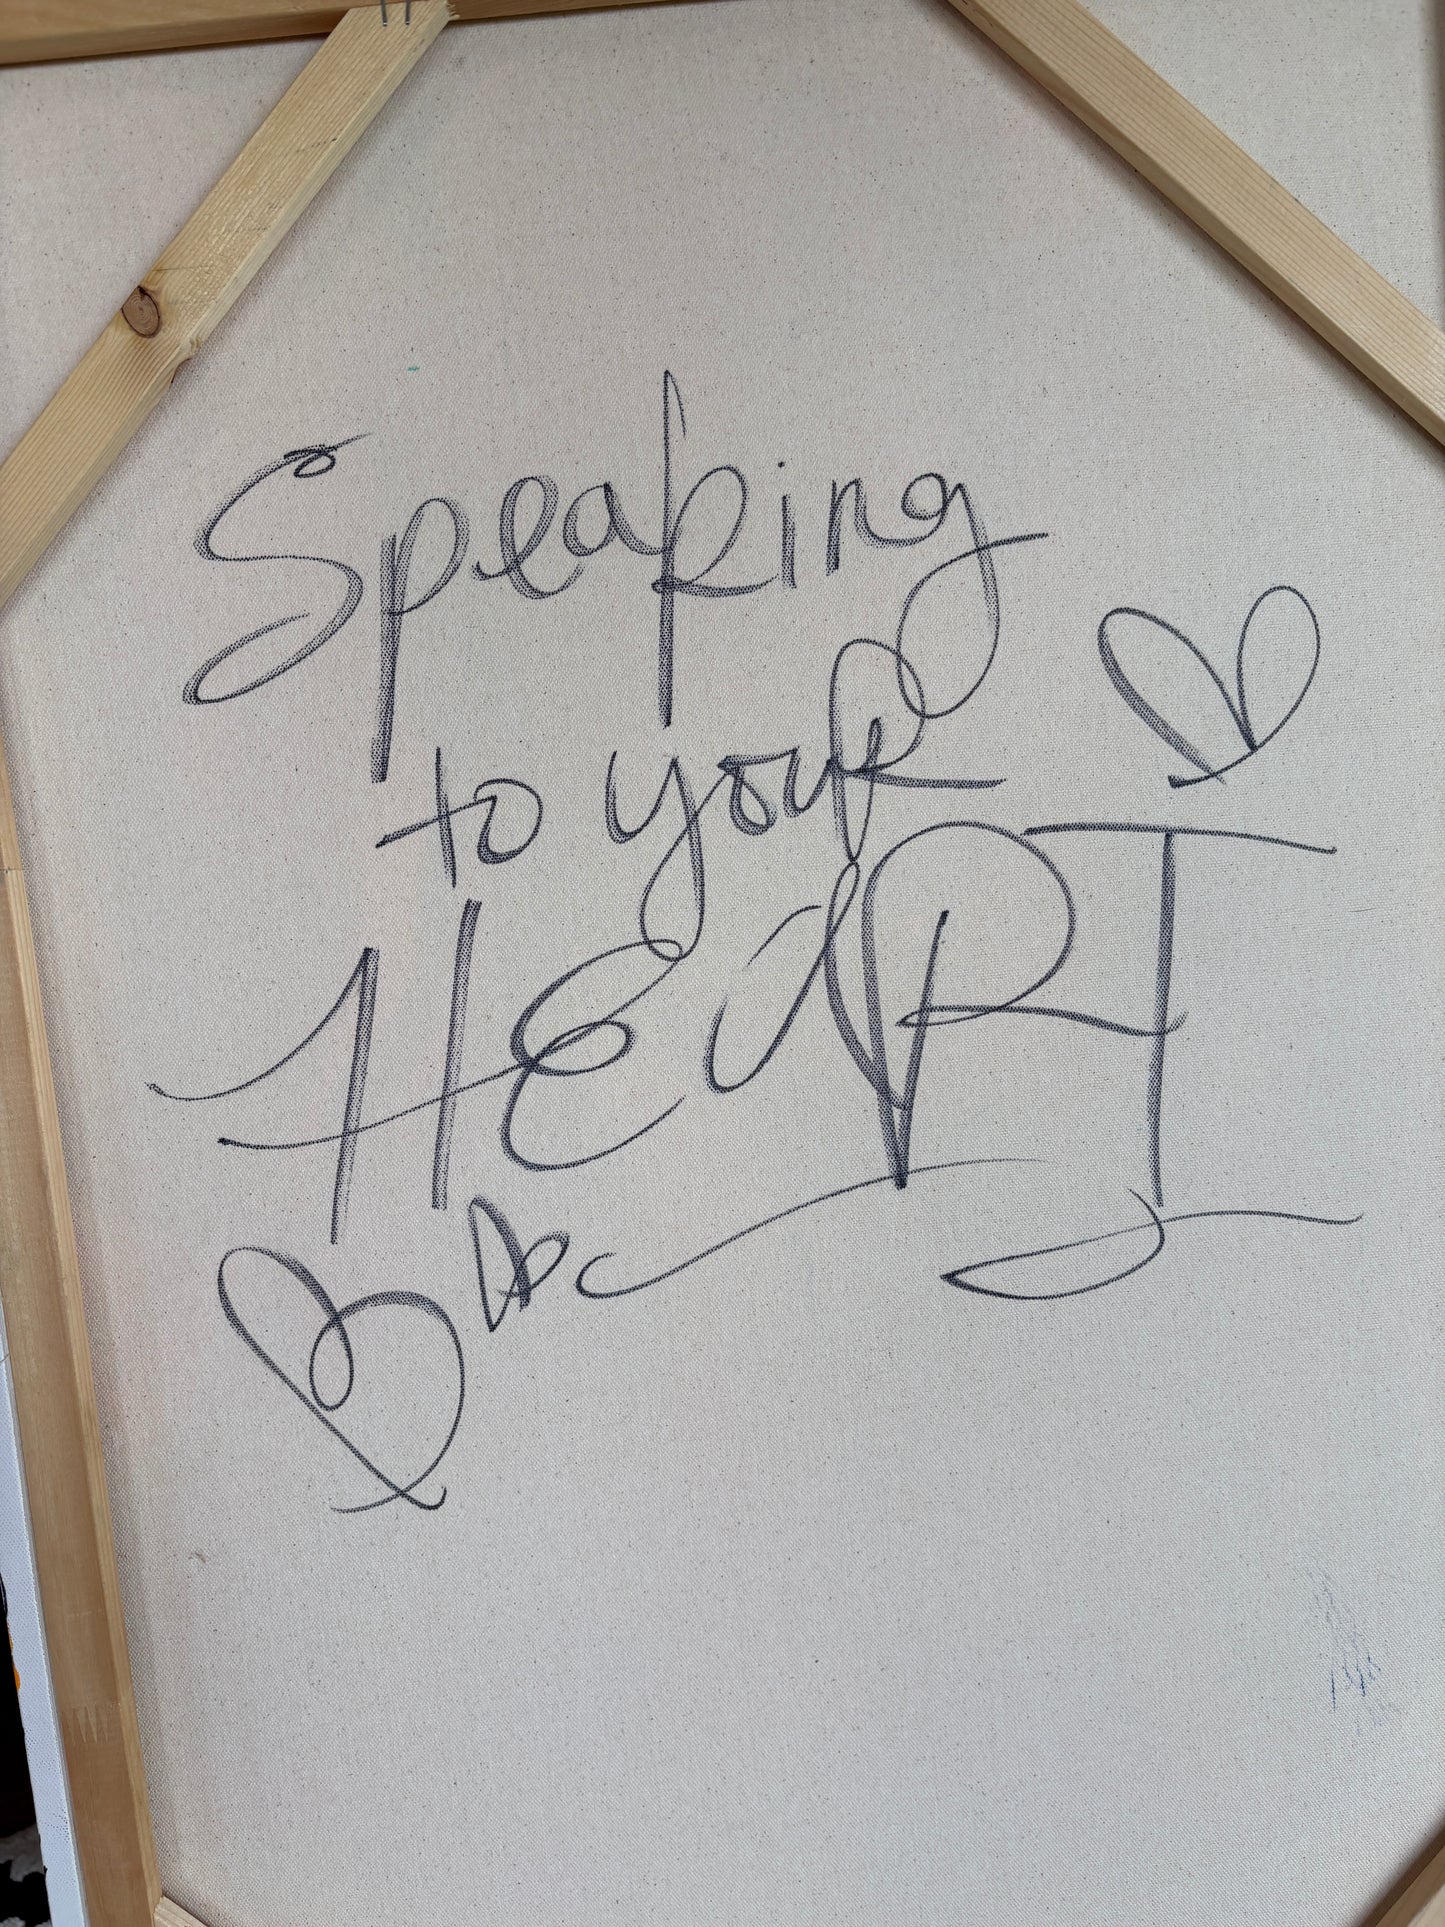 Speaking
to your
HEaRT